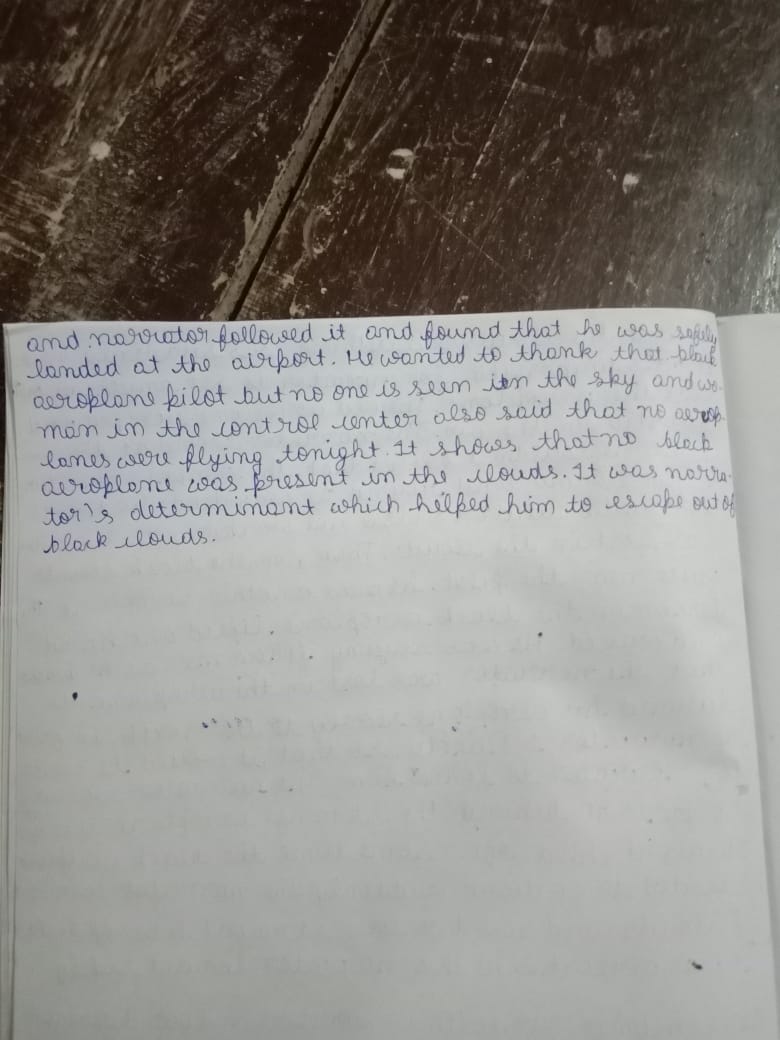 and narrator followed it and found that he was safely
landed at the airport. He wanted to thank that black
aeroplane pilot but no one is seen in the sky and wo-
man in the control center also said that no aerop-
lanes were flying tonight. It shows that no black
aeroplane was present in the clouds. It was narra-
tor's determinant which helped him to escape out of
black clouds.